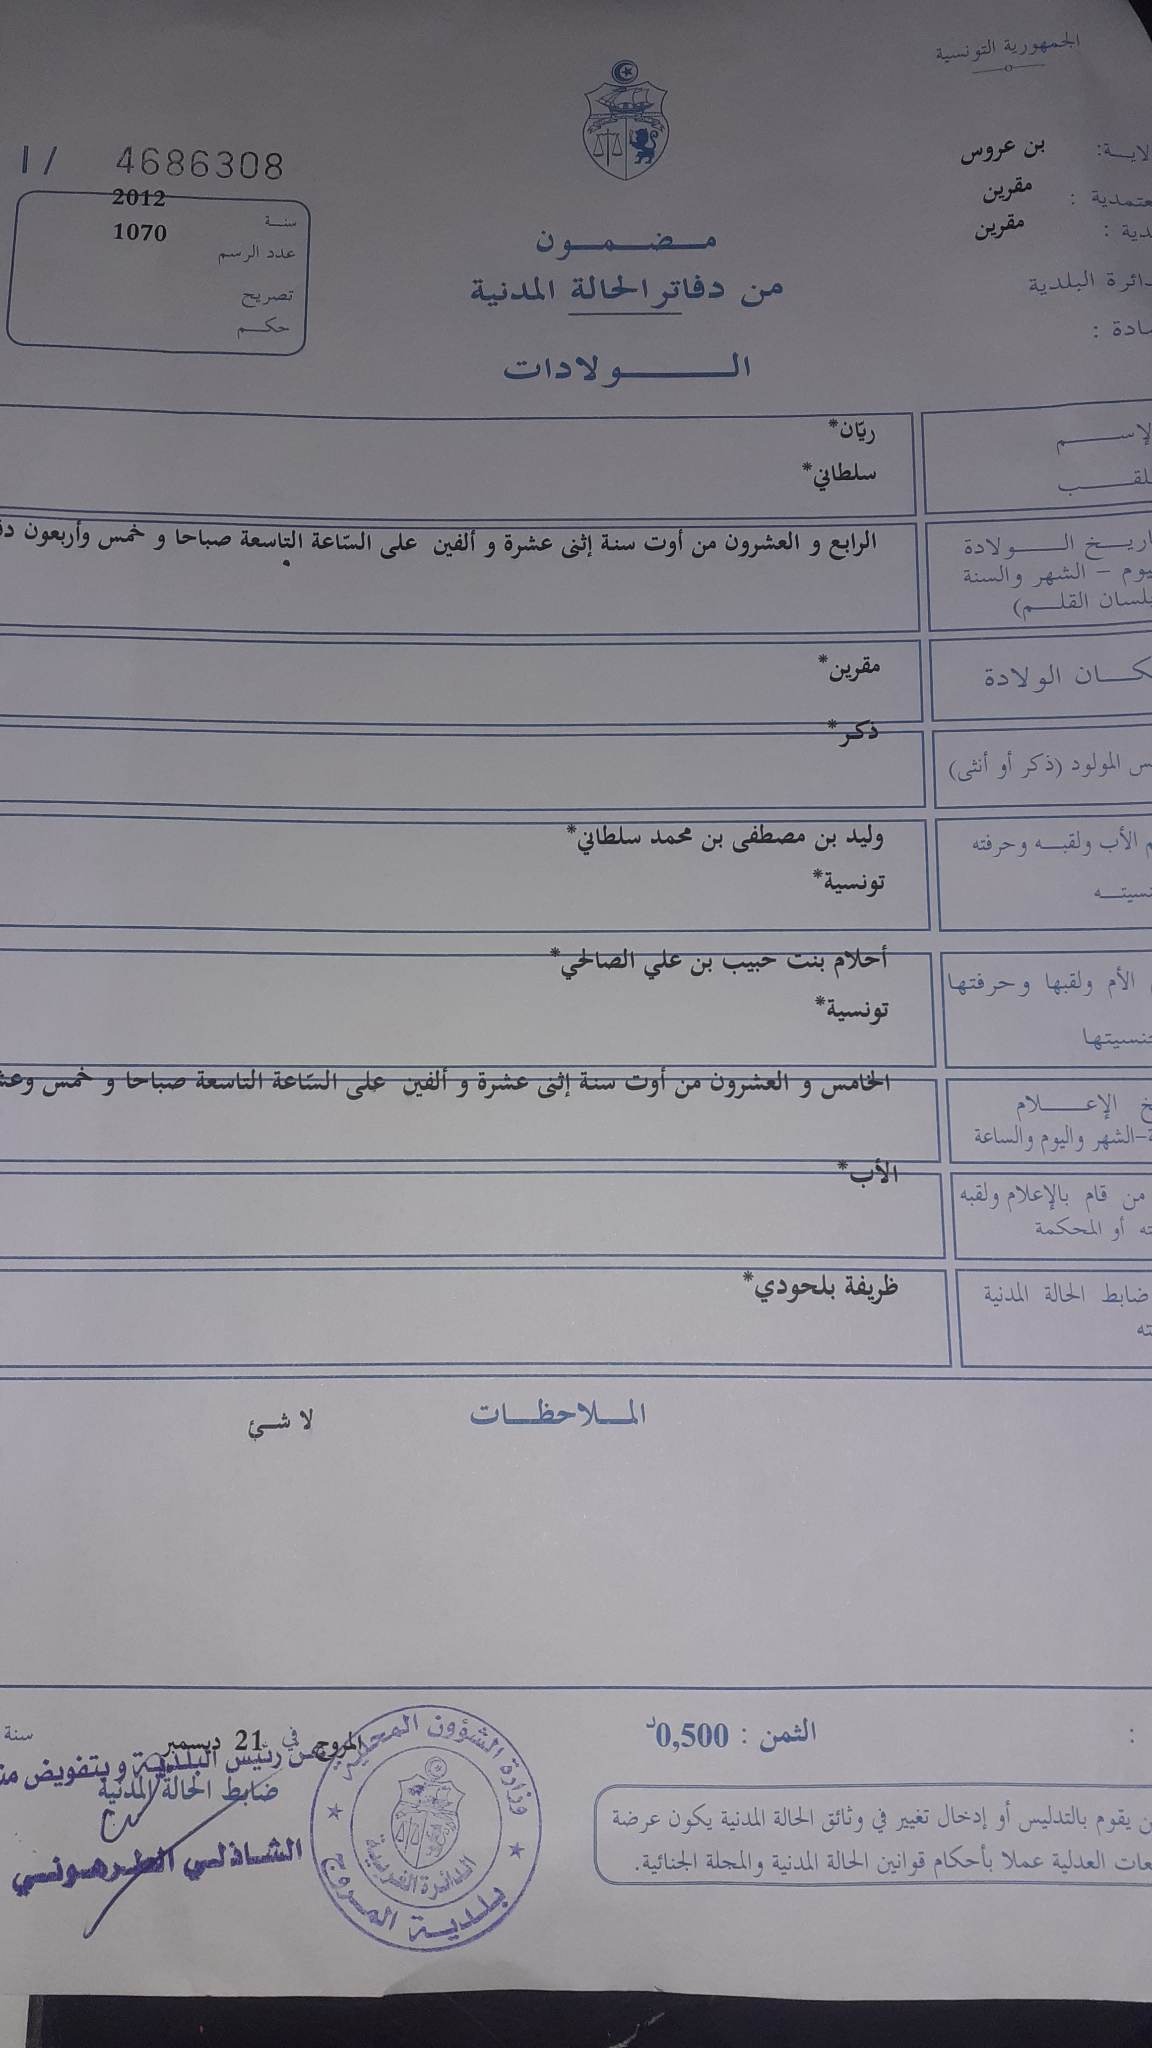 الجمهورية التونسية
بن عروس
معتمدية : مقرين
مقرين
الدائرة البلدية
I / 4686308
سنة 2012
عدد الرسم 1070
تصريح
حكم
مضمون
من دفاتر الحالة المدنية
الولادات
الإسم ريّان*
اللقب سلطاني*
تاريخ الولادة الرابع و العشرون من أوت سنة إثنى عشرة و ألفين على السّاعة التاسعة صباحا و خمس وأربعون
اليوم - الشهر والسنة
بلسان القلم)
مكان الولادة مقرين*
جنس المولود (ذكر أو أنثى) ذكر*
الأب ولقبه وحرفته وليد بن مصطفى بن محمد سلطاني*
تونسية*
الأم ولقبها وحرفتها أحلام بنت حبيب بن علي الصالحي*
جنسيتها تونسية*
الإعلام الخامس و العشرون من أوت سنة إثنى عشرة و ألفين على السّاعة التاسعة صباحا و خمس
-الشهر واليوم والساعة
من قام بالإعلام ولقبه الأب*
أو المحكمة
ضابط الحالة المدنية ظريفة بلحودي*
الملاحظات
لا شئ
الثمن : 0,500د
المروج في 21 ديسمبر سنة
عن رئيس البلدية وبتفويض منه
ضابط الحالة المدنية
الشاذلي الطرهوني
وزارة الشؤون المحلية
الدائرة الغربية
بلدية المروج
من يقوم بالتدليس أو إدخال تغيير في وثائق الحالة المدنية يكون عرضة
العدلية عملا بأحكام قوانين الحالة المدنية والمجلة الجنائية.